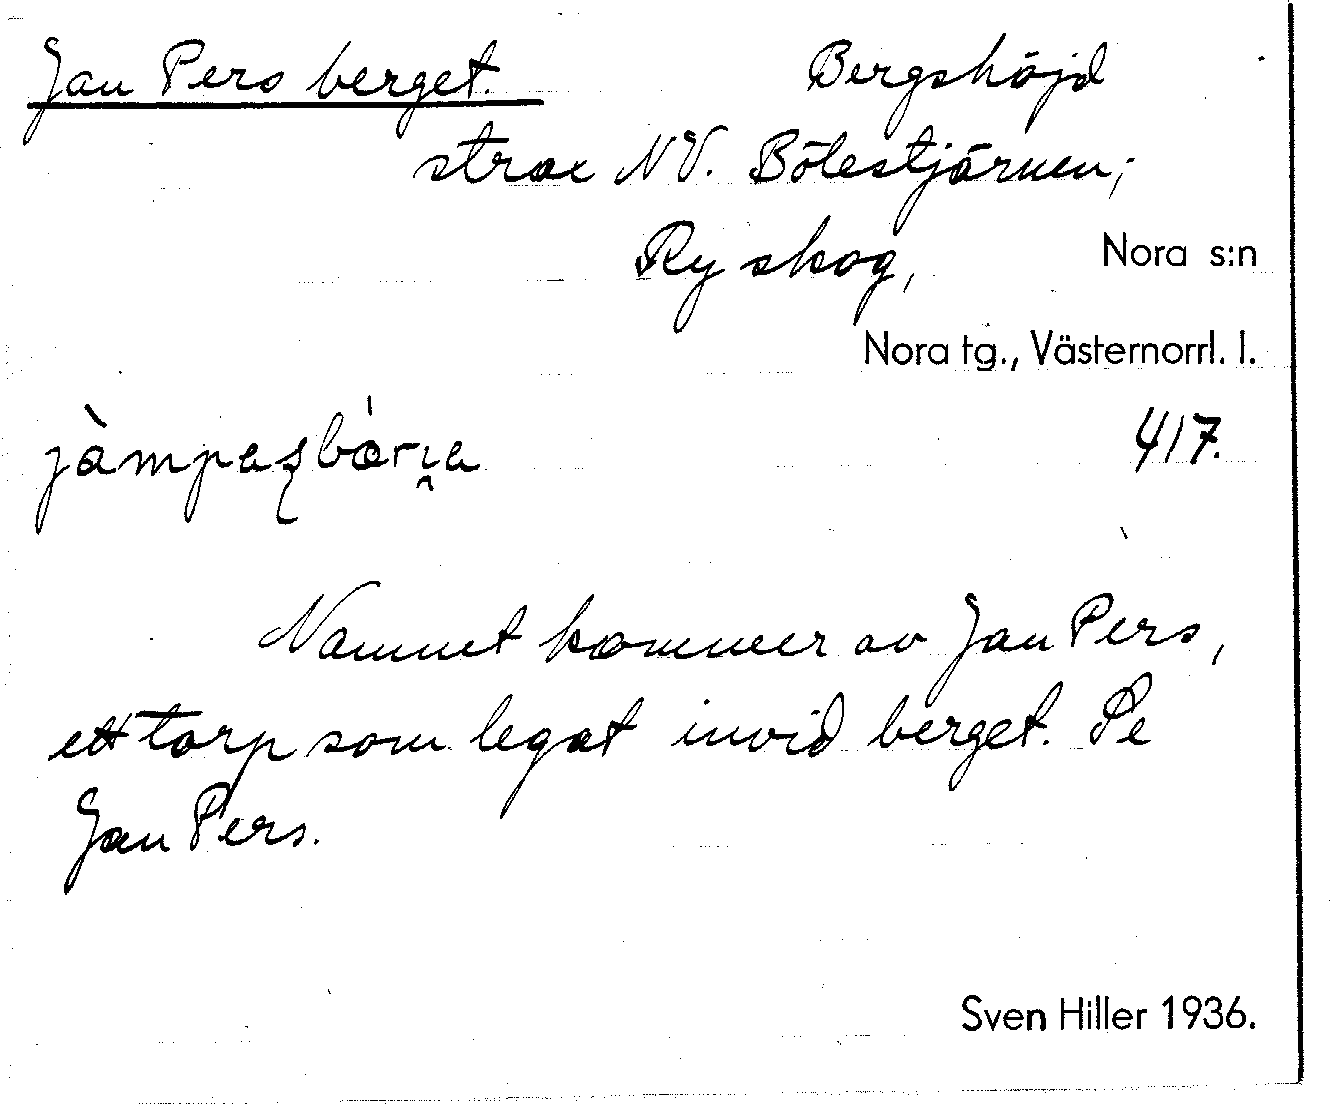 Jan Pers berget. Bergshöjd
strax NV. Bölestjärnen;
Ry skog, Nora s:n
Nora tg., Västernorrl. l.
417.
Namnet kommer av Jan Pers,
ett torp som legat invid berget. Se
Jan Pers.
Sven Hiller 1936.